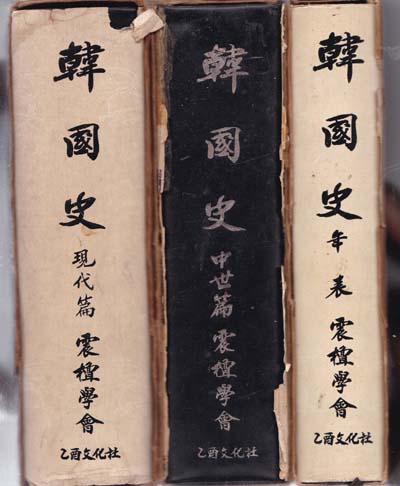 韓國史 現代篇 震檀學會
乙酉文化社
韓國史 中世篇 震檀學會
乙酉文化社
韓國史 年表 震檀學會
乙酉文化社